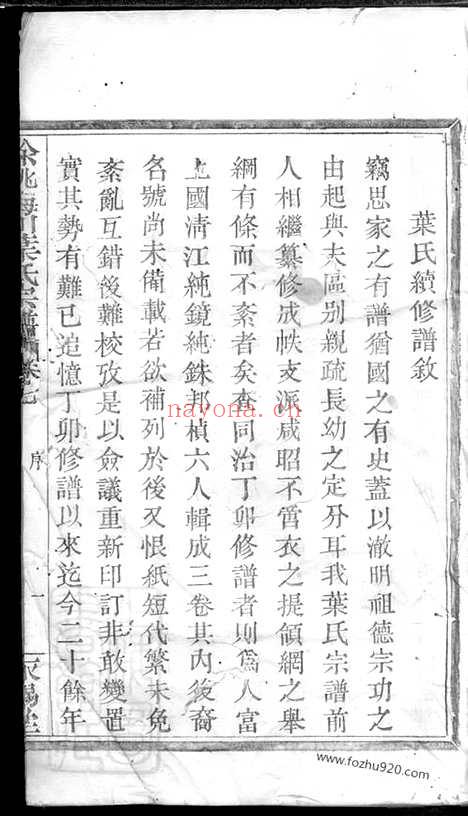 葉氏續修譜敘
竊思家之有譜猶國之有史蓋以澈明祖德宗功之
由起與夫區別親疏長幼之定分耳我葉氏宗譜前
人相繼纂修成帙支派咸昭不啻衣之提領網之舉
綱有條而不紊者矣查同治丁卯修譜者則爲人富
上國清江純鏡純銖邦楨六人輯成三卷其內後裔
名號尚未備載若欲補列於後又恨紙短代繁未免
紊亂互錯後難校攷是以僉議重新印訂非敢變置
實其勢有難已追憶丁卯修譜以來迄今二十餘年
餘姚葉氏宗譜
序
一
nayona.cn
www.fozhu920.com